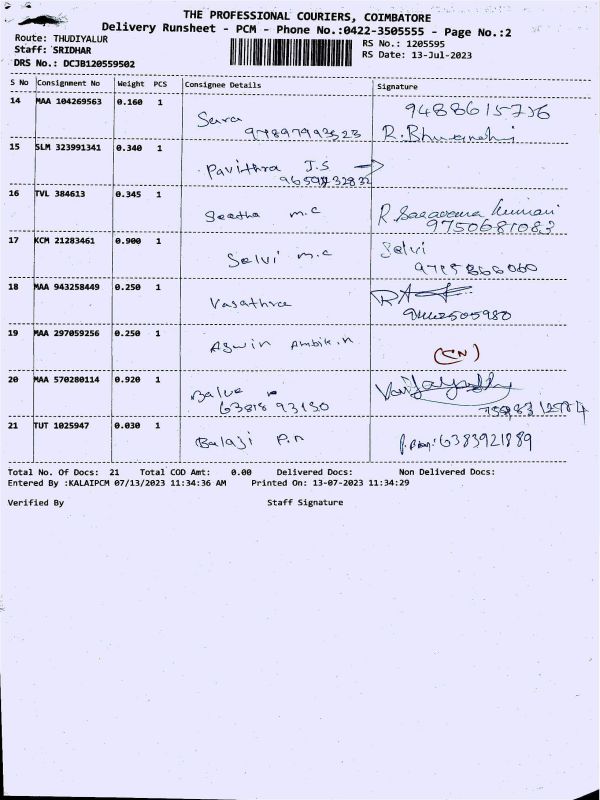 THE PROFESSIONAL COURIERS, COIMBATORE
Delivery Runsheet - PCM - Phone No.:0422-3505555 - Page No.:2
Route: THUDIYALUR
Staff: SRIDHAR
DRS No.: DCJB120559502
RS No.: 1205595
RS Date: 13-Jul-2023
S No Consignment No Weight PCS Consignee Details Signature
14 MAA 104269563 0.160 1 Sara 9488615756
R.
15 SLM 323991341 0.340 1 Pavithra J.S
16 TVL 384613 0.345 1 Seetha m.c R. Saravana Kumari
9750681083
17 KCM 21283461 0.900 1 Selvi m.c Selvi
18 MAA 943258449 0.250 1 Vasathra
19 MAA 297059256 0.250 1 Aswin Ambik.n (CN)
20 MAA 570280114 0.920 1
63818 93130
21 TUT 1025947 0.030 1 Balaji P.n 6383921889
Total No. Of Docs: 21 Total COD Amt: 0.00 Delivered Docs: Non Delivered Docs:
Entered By :KALAIPCM 07/13/2023 11:34:36 AM Printed On: 13-07-2023 11:34:29
Verified By Staff Signature